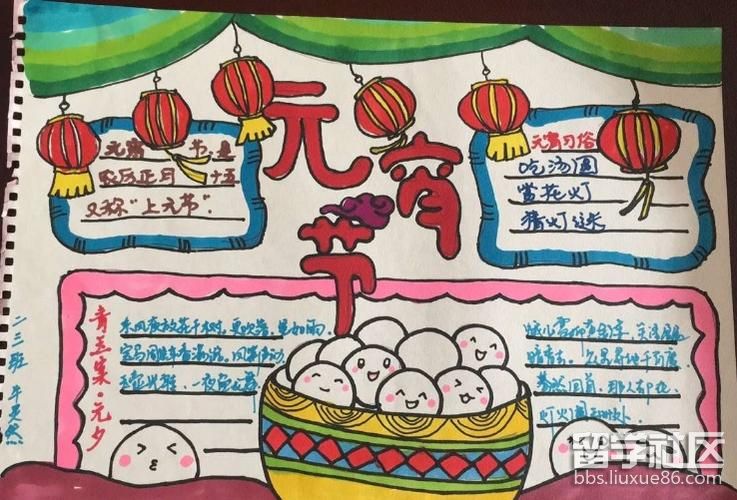 元宵节
元宵 节是
农历正月 十五
又称“上元节”.
元宵习俗
吃汤圆
赏花灯
猜灯谜
青玉案·元夕
东风夜放花千树,更吹落,星如雨.
宝马雕车香满路.凤箫声动,
玉壶光转,一夜鱼龙舞.
蛾儿雪柳黄金缕,笑语盈
暗香去.众里寻他千百度,
蓦然回首,那人却在,
灯火阑珊处.
二三班
留学社区
bbs.liuxue86.com